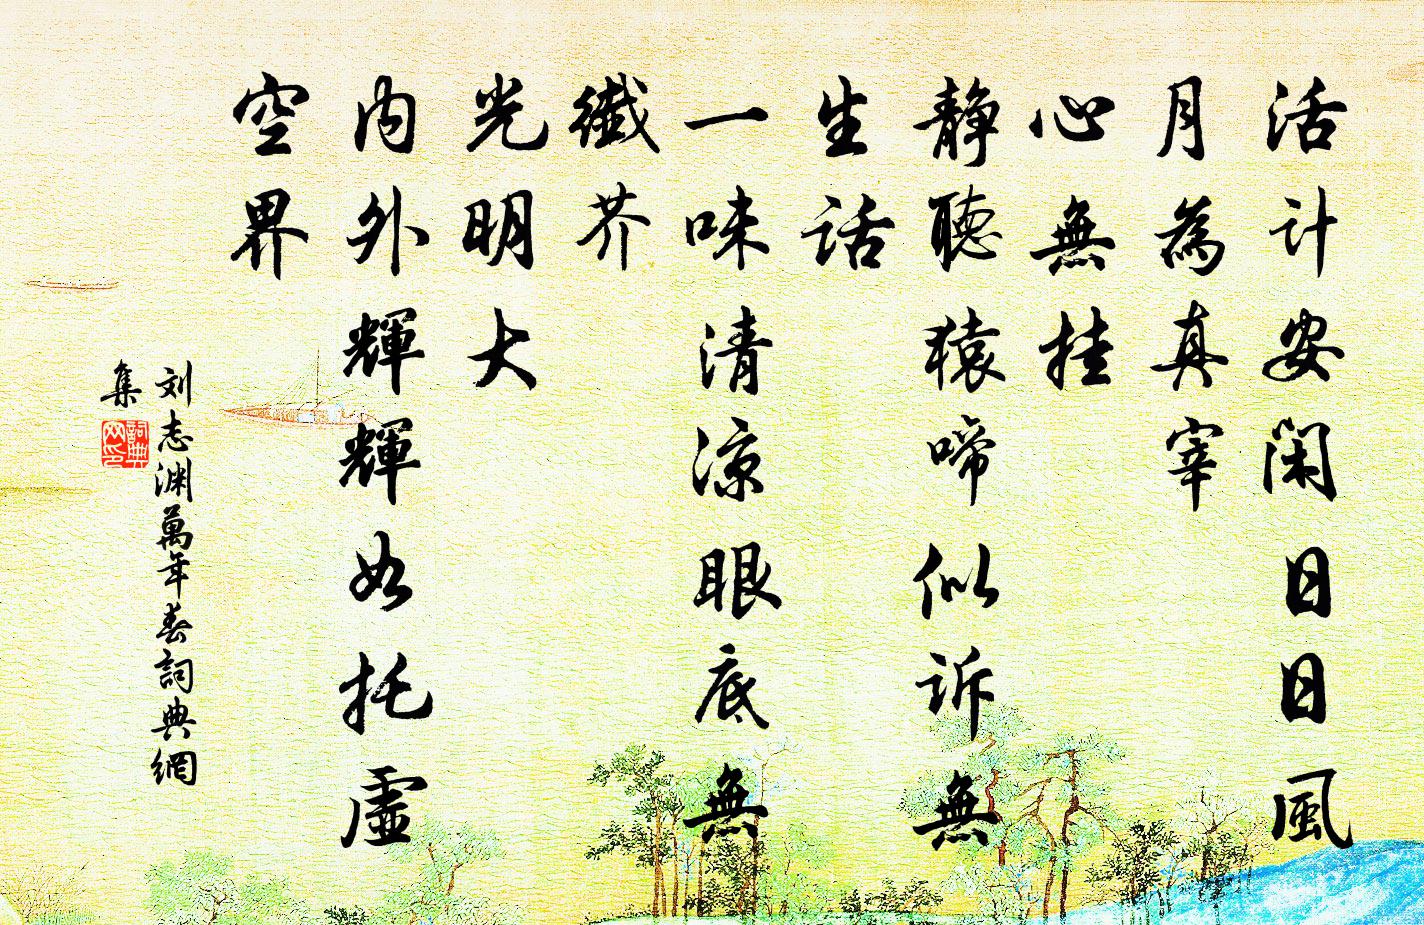 活计安闲日日風
月為真宰
心無挂
靜聽猿啼似诉無
生话
一味清涼眼底無
纖芥
光明大
内外輝輝如托虛
空界
刘志渊萬年春詞典網
集
詞典网印